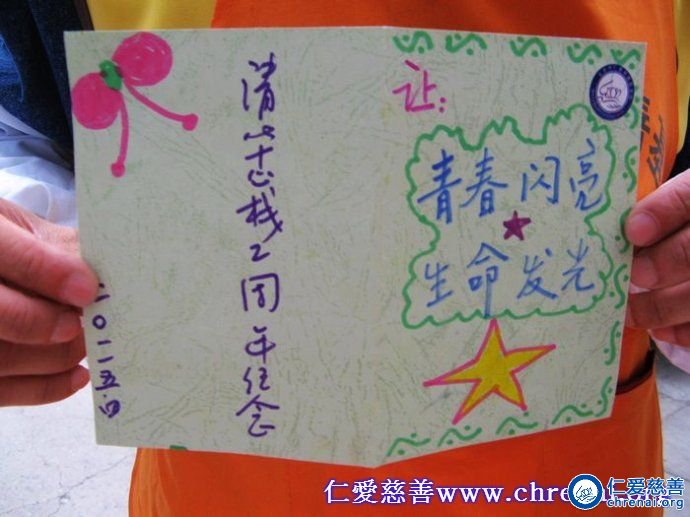 让:
青春闪亮
生命发光
清华心栈2周年纪念
二〇一一.五.四
仁愛慈善www.chrenai.org
仁爱慈善
chrenai.org